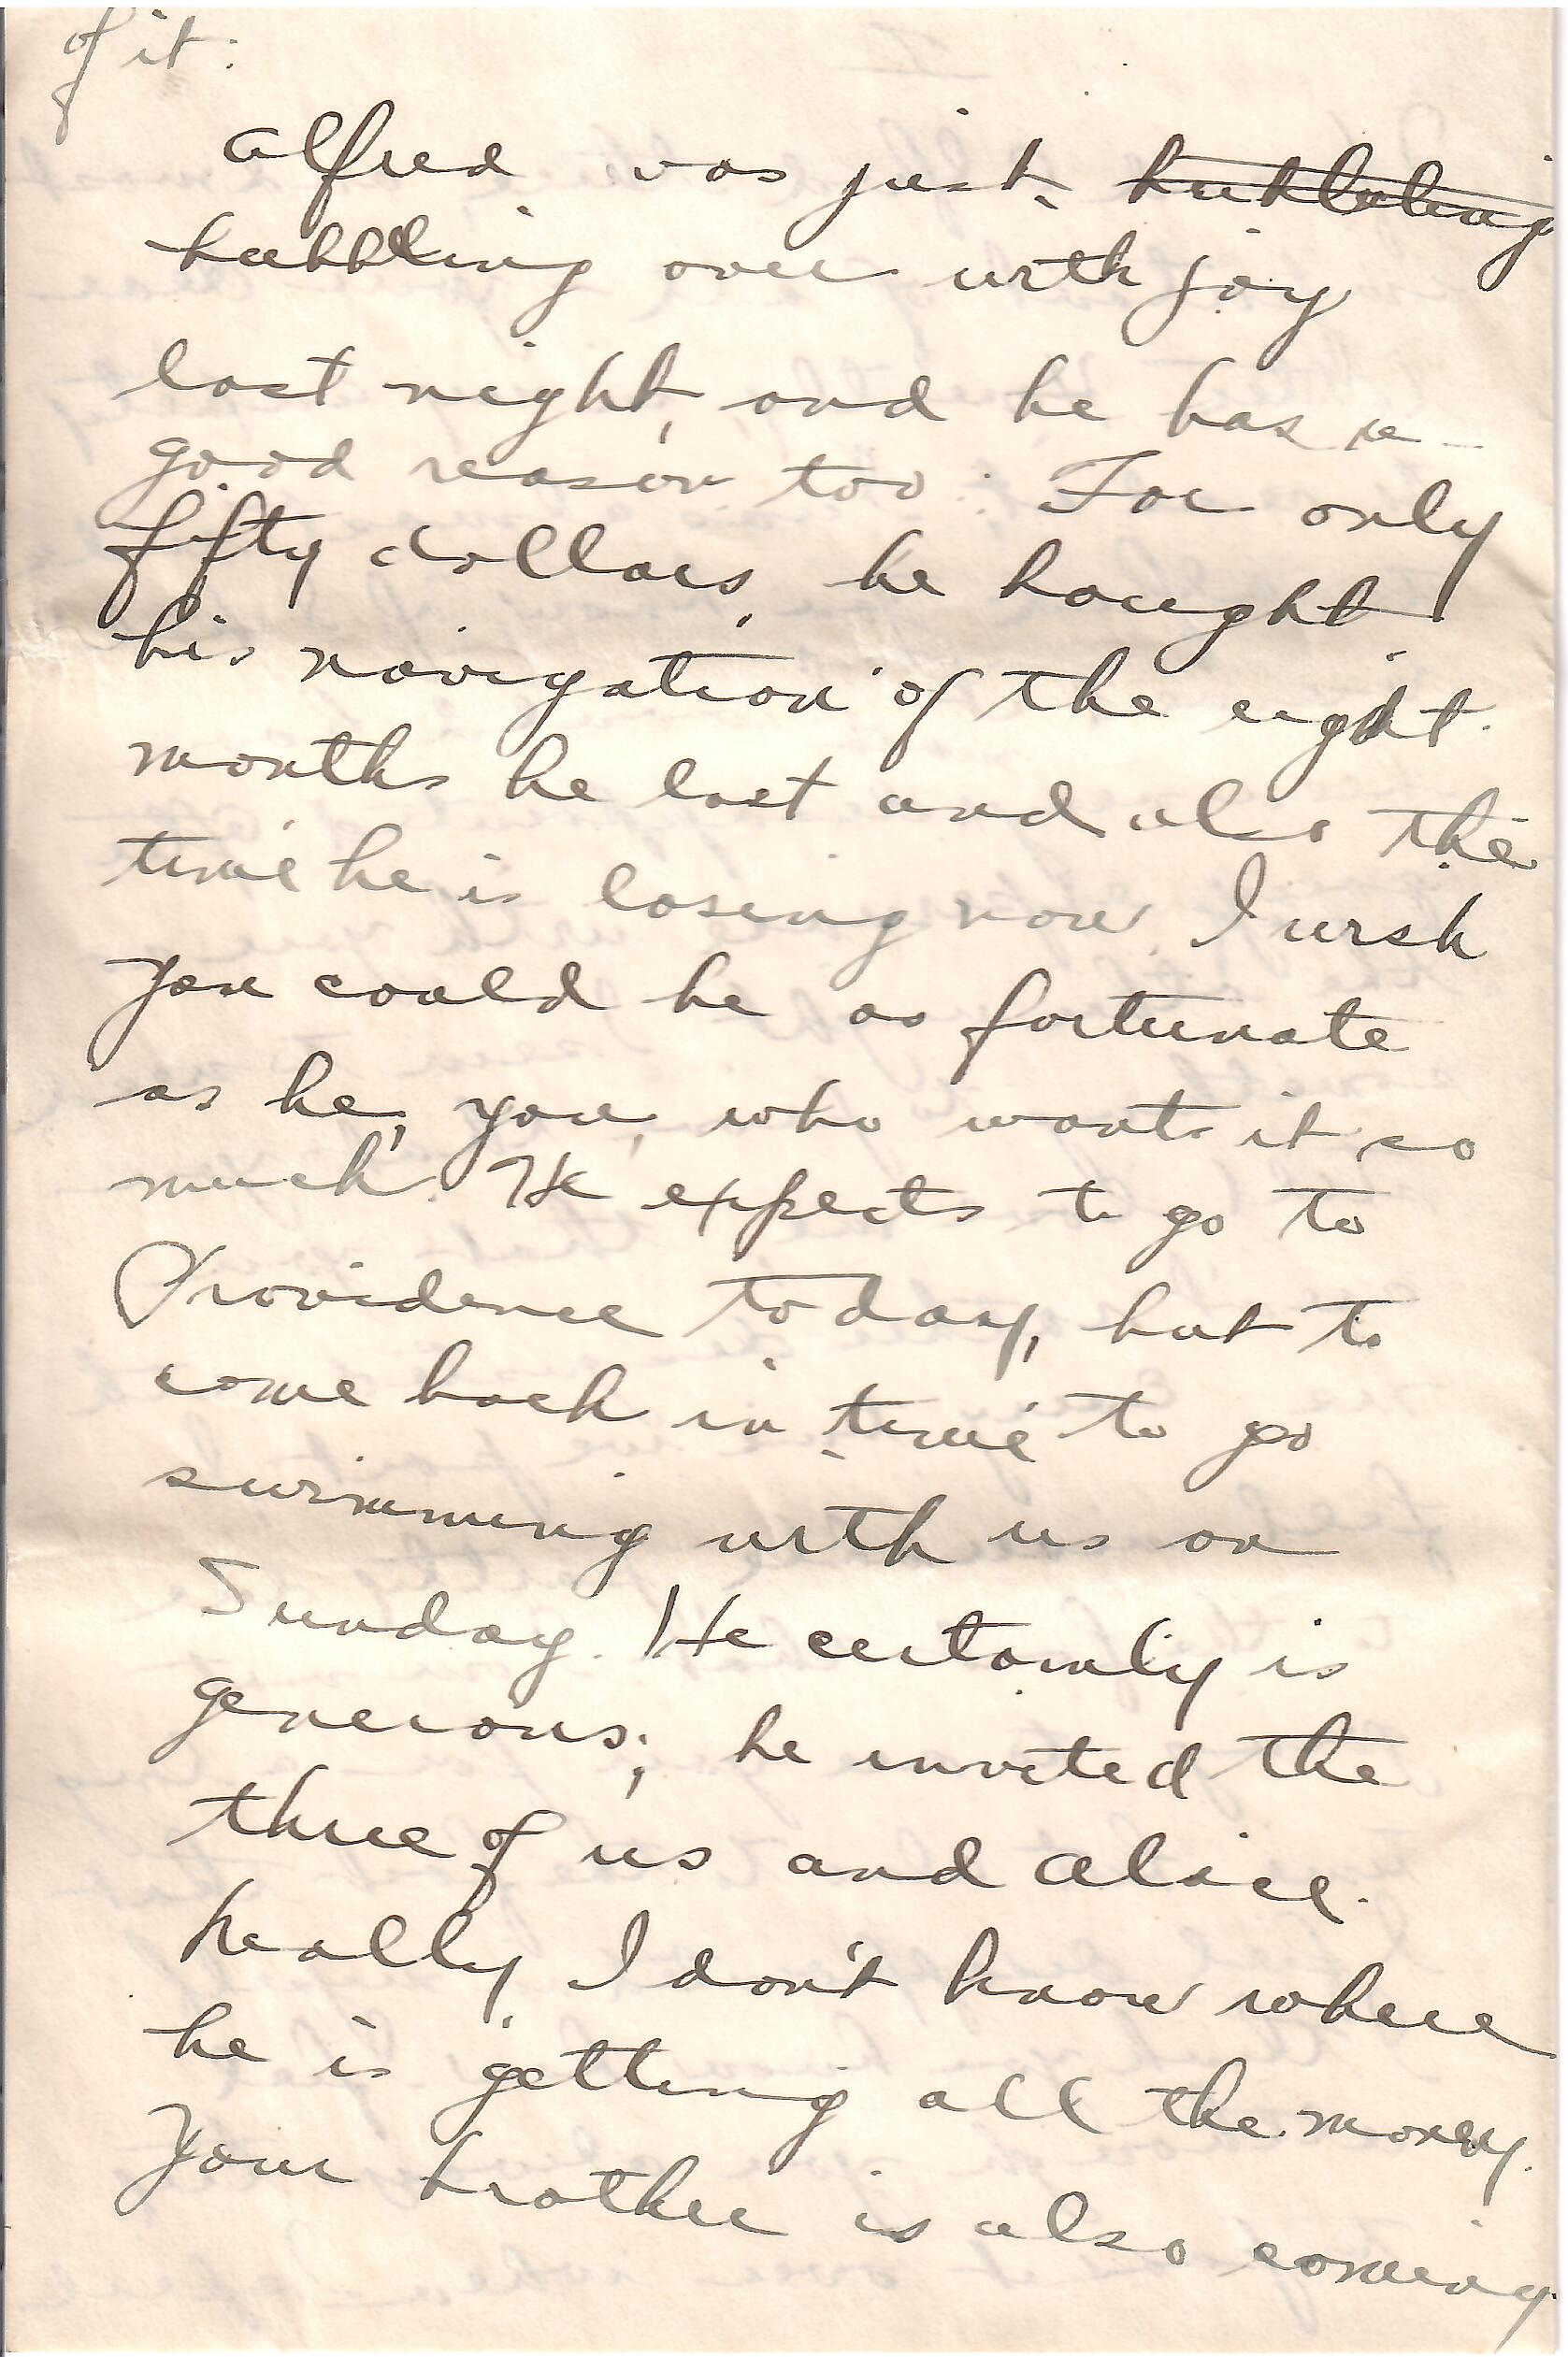 of it.
Alfred was just bubbling
bubbling over with joy
last night, and he has a
good reason too. For only
fifty dollars, he bought
his navigation of the eight
months he lost and also the
time he is losing now. I wish
you could be as fortunate
as he, you, who wants it so
much. He expects to go to
Providence today, but to
come back in time to go
swimming with us on
Sunday. He certainly is
generous; he invited the
three of us and Alice.
Really, I don't know where
he is getting all the money.
Your brother is also coming